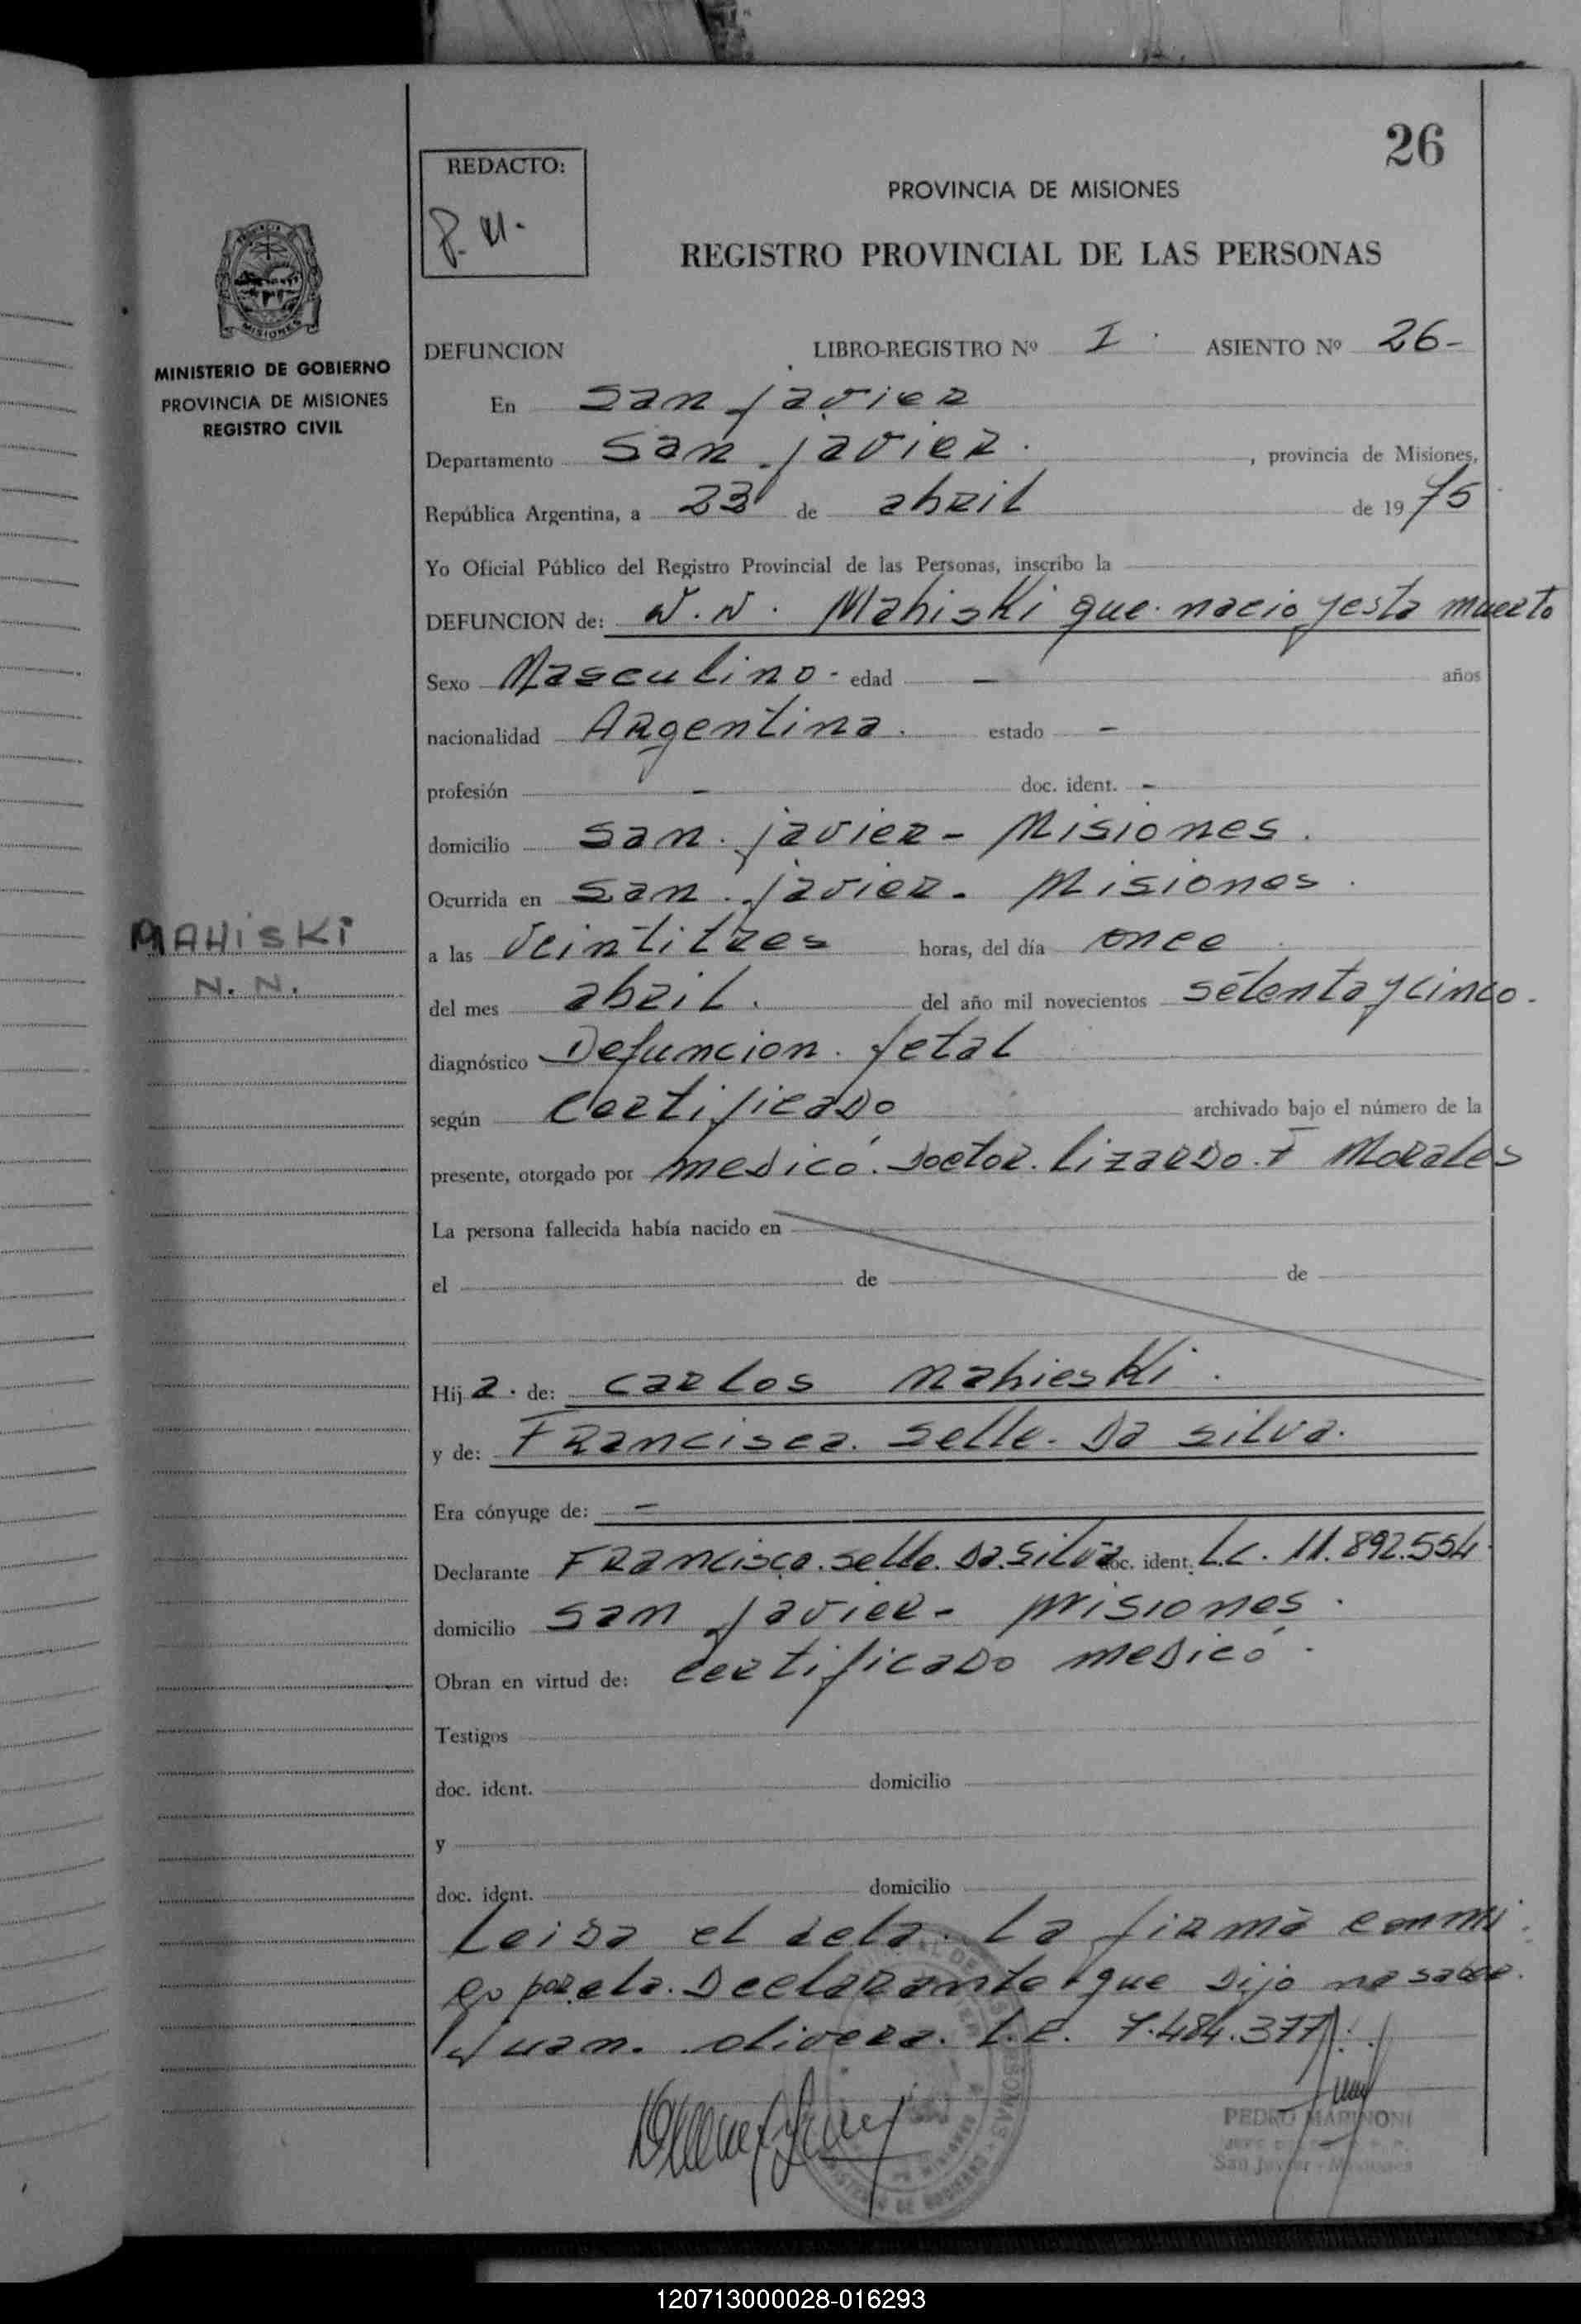 26
REDACTO:
P. M.
PROVINCIA DE MISIONES
REGISTRO PROVINCIAL DE LAS PERSONAS
MISIONES
MINISTERIO DE GOBIERNO
PROVINCIA DE MISIONES
REGISTRO CIVIL
DEFUNCION LIBRO-REGISTRO Nº I. ASIENTO Nº 26-
En San Javier
Departamento San Javier. , provincia de Misiones,
República Argentina, a 23 de abril de 1975
Yo Oficial Público del Registro Provincial de las Personas, inscribo la
DEFUNCION de: N. N. Mahiski que nacio y esta muerto
Sexo Masculino- edad - años
nacionalidad Argentina. estado -
profesión - doc. ident. -
domicilio San Javier - Misiones.
Ocurrida en San Javier - Misiones.
MAHiSKi
N. N.
a las Veintitres horas, del día once
del mes abril. del año mil novecientos setenta y cinco.
diagnóstico Defuncion fetal
según certificado archivado bajo el número de la
presente, otorgado por medicó. Doctor. Lizardo. F Morales
La persona fallecida había nacido en
el de de
Hija. de: Carlos Mahieski.
y de: Francisca. Selle. Da Silva.
Era cónyuge de: -
Declarante Francisca. Selle. Da. Silva doc. ident. L.C. 11.892.554.
domicilio San Javier - Misiones.
Obran en virtud de: certificado medicó.
Testigos
doc. ident. domicilio
y
doc. ident. domicilio
Leida el acta. La firmà conmi
go por la. Declarante que dijo no saber.
Juan. Olivera. L.E. 7.484.377
PEDRO MARINONI
San Javier - Misiones
120713000028-016293